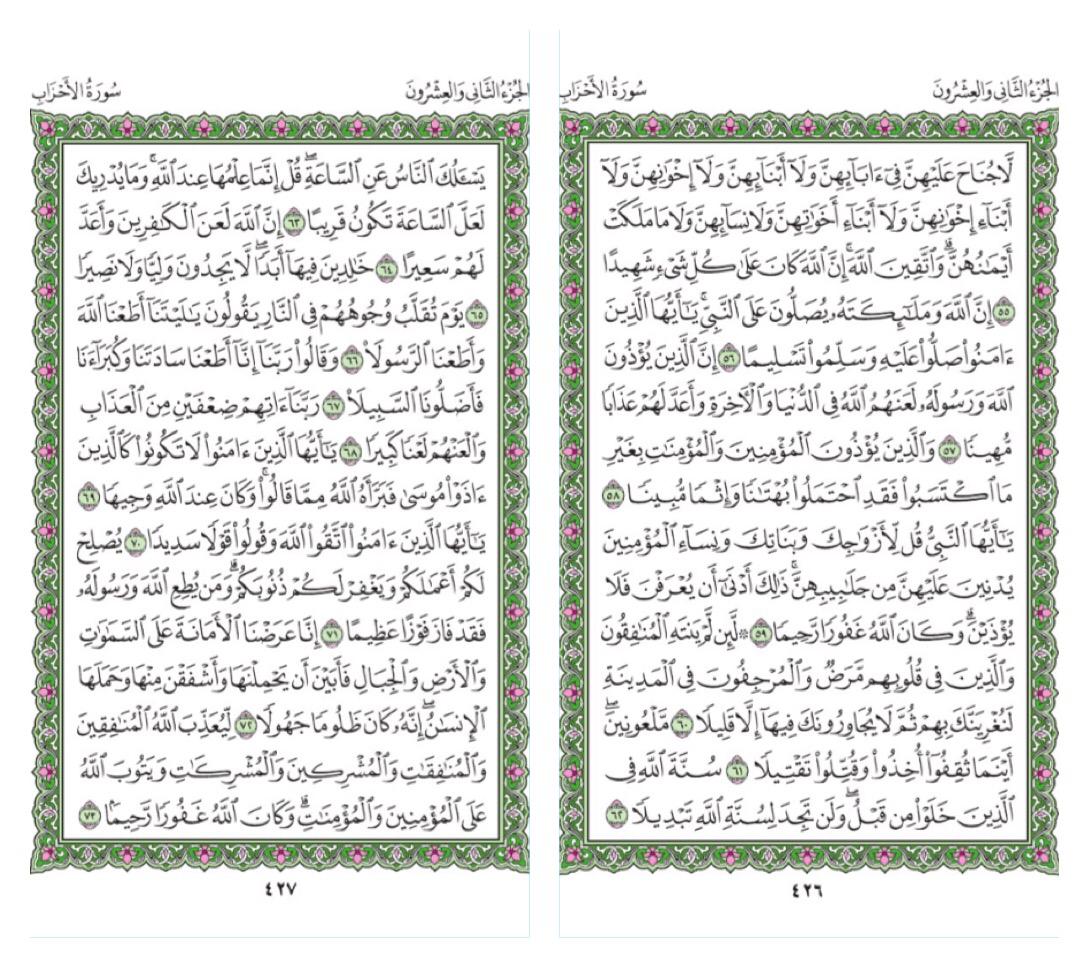 الجُزْءُ الثَّانِي وَالعِشْرُونَ
سُورَةُ الأَحْزَابِ
لَّا جُنَاحَ عَلَيْهِنَّ فِىٓ ءَابَآئِهِنَّ وَلَآ أَبْنَآئِهِنَّ وَلَآ إِخْوَٰنِهِنَّ وَلَآ
أَبْنَآءِ إِخْوَٰنِهِنَّ وَلَآ أَبْنَآءِ أَخَوَٰتِهِنَّ وَلَا نِسَآئِهِنَّ وَلَا مَا مَلَكَتْ
أَيْمَٰنُهُنَّۗ وَٱتَّقِينَ ٱللَّهَۚ إِنَّ ٱللَّهَ كَانَ عَلَىٰ كُلِّ شَىْءٍ شَهِيدًا
٥٥ إِنَّ ٱللَّهَ وَمَلَٰٓئِكَتَهُۥ يُصَلُّونَ عَلَى ٱلنَّبِىِّۚ يَٰٓأَيُّهَا ٱلَّذِينَ
ءَامَنُوا۟ صَلُّوا۟ عَلَيْهِ وَسَلِّمُوا۟ تَسْلِيمًا ٥٦ إِنَّ ٱلَّذِينَ يُؤْذُونَ
ٱللَّهَ وَرَسُولَهُۥ لَعَنَهُمُ ٱللَّهُ فِى ٱلدُّنْيَا وَٱلْءَاخِرَةِ وَأَعَدَّ لَهُمْ عَذَابًا
مُّهِينًا ٥٧ وَٱلَّذِينَ يُؤْذُونَ ٱلْمُؤْمِنِينَ وَٱلْمُؤْمِنَٰتِ بِغَيْرِ
مَا ٱكْتَسَبُوا۟ فَقَدِ ٱحْتَمَلُوا۟ بُهْتَٰنًا وَإِثْمًا مُّبِينًا ٥٨
يَٰٓأَيُّهَا ٱلنَّبِىُّ قُل لِّأَزْوَٰجِكَ وَبَنَاتِكَ وَنِسَآءِ ٱلْمُؤْمِنِينَ
يُدْنِينَ عَلَيْهِنَّ مِن جَلَٰبِيبِهِنَّۚ ذَٰلِكَ أَدْنَىٰٓ أَن يُعْرَفْنَ فَلَا
يُؤْذَيْنَۗ وَكَانَ ٱللَّهُ غَفُورًا رَّحِيمًا ٥٩ ۞ لَّئِن لَّمْ يَنتَهِ ٱلْمُنَٰفِقُونَ
وَٱلَّذِينَ فِى قُلُوبِهِم مَّرَضٌ وَٱلْمُرْجِفُونَ فِى ٱلْمَدِينَةِ
لَنُغْرِيَنَّكَ بِهِمْ ثُمَّ لَا يُجَاوِرُونَكَ فِيهَآ إِلَّا قَلِيلًا ٦٠ مَّلْعُونِينَۖ
أَيْنَمَا ثُقِفُوٓا۟ أُخِذُوا۟ وَقُتِّلُوا۟ تَقْتِيلًا ٦١ سُنَّةَ ٱللَّهِ فِى
ٱلَّذِينَ خَلَوْا۟ مِن قَبْلُۖ وَلَن تَجِدَ لِسُنَّةِ ٱللَّهِ تَبْدِيلًا ٦٢
٤٢٦
الجُزْءُ الثَّانِي وَالعِشْرُونَ
سُورَةُ الأَحْزَابِ
يَسْـَٔلُكَ ٱلنَّاسُ عَنِ ٱلسَّاعَةِۖ قُلْ إِنَّمَا عِلْمُهَا عِندَ ٱللَّهِۚ وَمَا يُدْرِيكَ
لَعَلَّ ٱلسَّاعَةَ تَكُونُ قَرِيبًا ٦٣ إِنَّ ٱللَّهَ لَعَنَ ٱلْكَٰفِرِينَ وَأَعَدَّ
لَهُمْ سَعِيرًا ٦٤ خَٰلِدِينَ فِيهَآ أَبَدًاۖ لَّا يَجِدُونَ وَلِيًّا وَلَا نَصِيرًا
٦٥ يَوْمَ تُقَلَّبُ وُجُوهُهُمْ فِى ٱلنَّارِ يَقُولُونَ يَٰلَيْتَنَآ أَطَعْنَا ٱللَّهَ
وَأَطَعْنَا ٱلرَّسُولَا۠ ٦٦ وَقَالُوا۟ رَبَّنَآ إِنَّآ أَطَعْنَا سَادَتَنَا وَكُبَرَآءَنَا
فَأَضَلُّونَا ٱلسَّبِيلَا۠ ٦٧ رَبَّنَآ ءَاتِهِمْ ضِعْفَيْنِ مِنَ ٱلْعَذَابِ
وَٱلْعَنْهُمْ لَعْنًا كَبِيرًا ٦٨ يَٰٓأَيُّهَا ٱلَّذِينَ ءَامَنُوا۟ لَا تَكُونُوا۟ كَٱلَّذِينَ
ءَاذَوْا۟ مُوسَىٰ فَبَرَّأَهُ ٱللَّهُ مِمَّا قَالُوا۟ۚ وَكَانَ عِندَ ٱللَّهِ وَجِيهًا ٦٩
يَٰٓأَيُّهَا ٱلَّذِينَ ءَامَنُوا۟ ٱتَّقُوا۟ ٱللَّهَ وَقُولُوا۟ قَوْلًا سَدِيدًا ٧٠ يُصْلِحْ
لَكُمْ أَعْمَٰلَكُمْ وَيَغْفِرْ لَكُمْ ذُنُوبَكُمْۗ وَمَن يُطِعِ ٱللَّهَ وَرَسُولَهُۥ
فَقَدْ فَازَ فَوْزًا عَظِيمًا ٧١ إِنَّا عَرَضْنَا ٱلْأَمَانَةَ عَلَى ٱلسَّمَٰوَٰتِ
وَٱلْأَرْضِ وَٱلْجِبَالِ فَأَبَيْنَ أَن يَحْمِلْنَهَا وَأَشْفَقْنَ مِنْهَا وَحَمَلَهَا
ٱلْإِنسَٰنُۖ إِنَّهُۥ كَانَ ظَلُومًا جَهُولًا ٧٢ لِّيُعَذِّبَ ٱللَّهُ ٱلْمُنَٰفِقِينَ
وَٱلْمُنَٰفِقَٰتِ وَٱلْمُشْرِكِينَ وَٱلْمُشْرِكَٰتِ وَيَتُوبَ ٱللَّهُ
عَلَى ٱلْمُؤْمِنِينَ وَٱلْمُؤْمِنَٰتِۗ وَكَانَ ٱللَّهُ غَفُورًا رَّحِيمًۢا ٧٣
٤٢٧